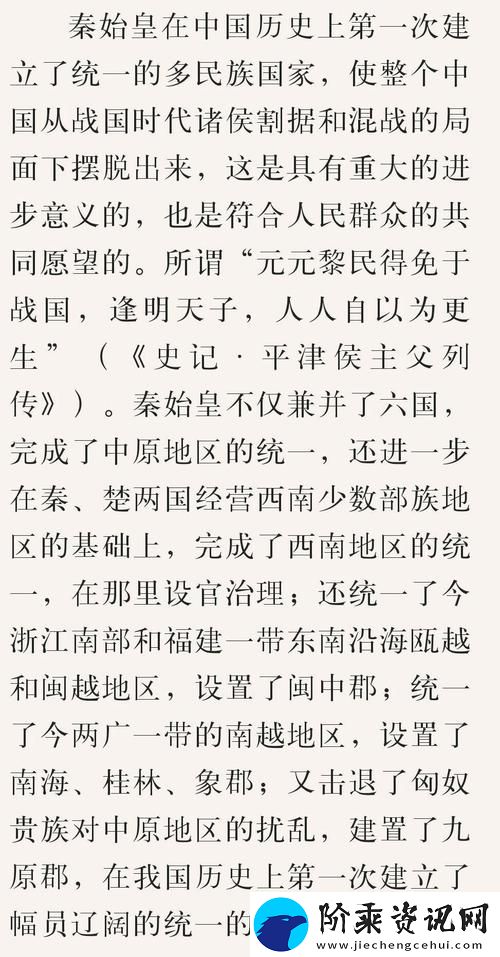 秦始皇在中国历史上第一次建
立了统一的多民族国家，使整个中
国从战国时代诸侯割据和混战的局
面下摆脱出来，这是具有重大的进
步意义的，也是符合人民群众的共
同愿望的。所谓“元元黎民得免于
战国，逢明天子，人人自以为更
生”（《史记·平津侯主父列
传》）。秦始皇不仅兼并了六国，
完成了中原地区的统一，还进一步
在秦、楚两国经营西南少数部族地
区的基础上，完成了西南地区的统
一，在那里设官治理；还统一了今
浙江南部和福建一带东南沿海瓯越
和闽越地区，设置了闽中郡；统一
了今两广一带的南越地区，设置了
南海、桂林、象郡；又击退了匈奴
贵族对中原地区的扰乱，建置了九
原郡，在我国历史上第一次建立了
幅员辽阔的统一的
阶乘资讯网
www.jiechengcehui.com